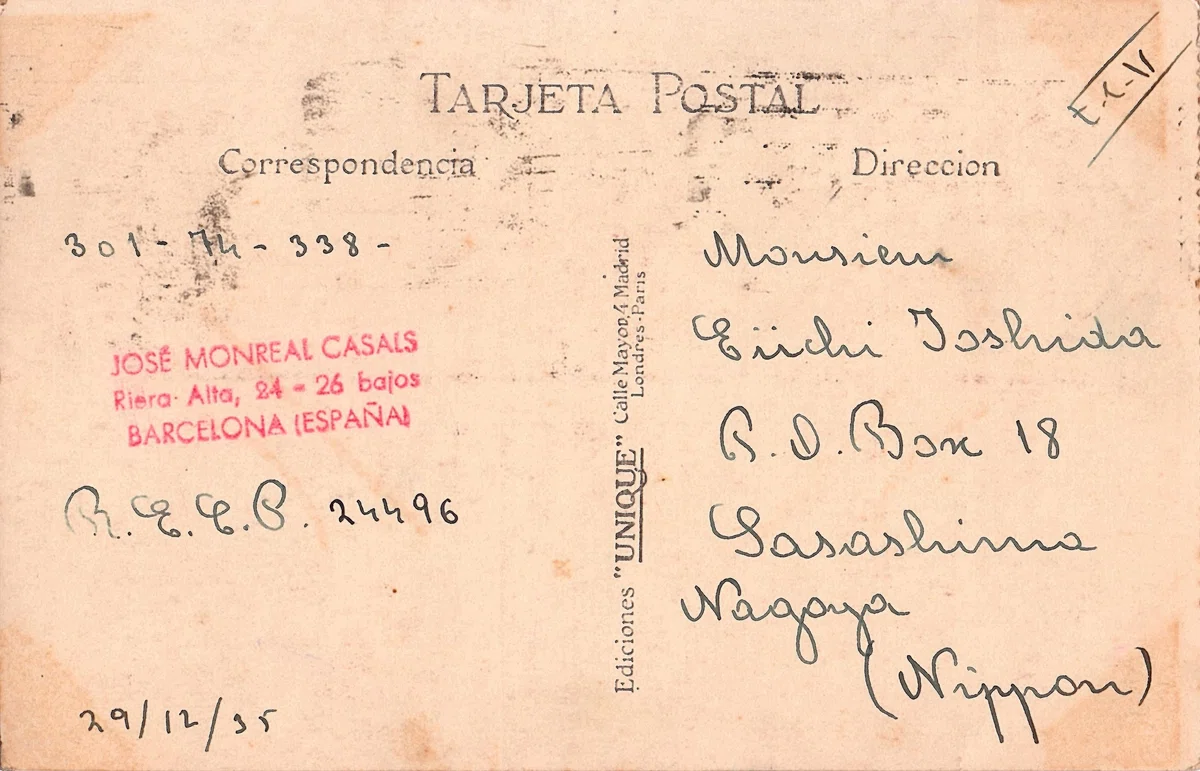 TARJETA POSTAL
Correspondencia
Direccion
301-74-338-
JOSÉ MONREAL CASALS
Riera Alta, 24 - 26 bajos
BARCELONA (ESPAÑA)
R.E.C.P. 24496
29/12/35
Ediciones "UNIQUE" Calle Mayor, 4 Madrid
Londres-Paris
Monsieur
Eiichi Ioshida
P.O.Box 18
Sasashima
Nagoya
(Nippon)